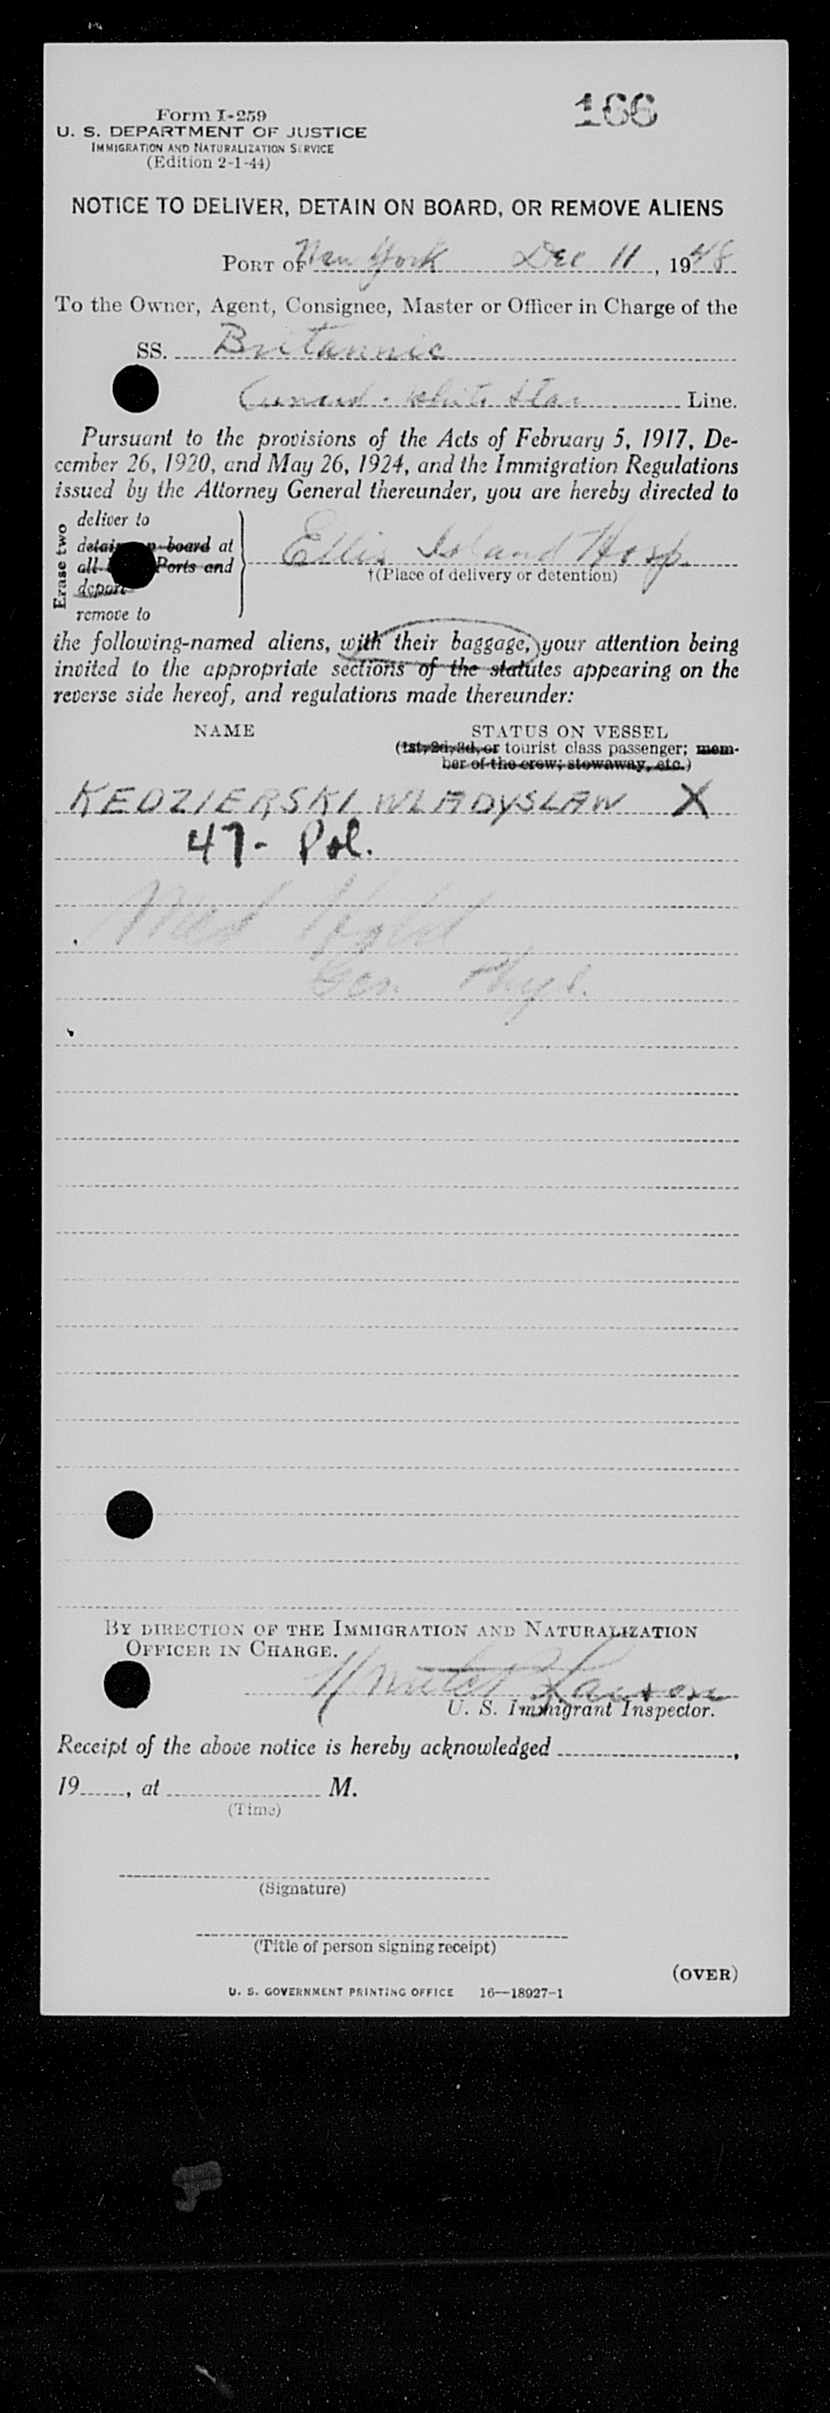 166
Form I-259
U. S. DEPARTMENT OF JUSTICE
IMMIGRATION AND NATURALIZATION SERVICE
(Edition 2-1-44)
NOTICE TO DELIVER, DETAIN ON BOARD, OR REMOVE ALIENS
PORT OF New York Dec 11, 1948
To the Owner, Agent, Consignee, Master or Officer in Charge of the
SS. Britannic
Cunard - White Star Line.
Pursuant to the provisions of the Acts of February 5, 1917, De-
cember 26, 1920, and May 26, 1924, and the Immigration Regulations
issued by the Attorney General thereunder, you are hereby directed to
Erase two
deliver to
detain on board at
all Ports and
deport
remove to
Ellis Island Hosp.
†(Place of delivery or detention)
the following-named aliens, with their baggage, your attention being
invited to the appropriate sections of the statutes appearing on the
reverse side hereof, and regulations made thereunder:
NAME STATUS ON VESSEL
(1st, 2d, 3d, or tourist class passenger; mem-
ber of the crew; stowaway, etc.)
KEDZIERSKI WLADYSLAW X
47- Pol.
Med Hold
Gen. Phys.
BY DIRECTION OF THE IMMIGRATION AND NATURALIZATION
OFFICER IN CHARGE.
U. S. Immigrant Inspector.
Receipt of the above notice is hereby acknowledged ,
19 , at M.
(Time)
(Signature)
(Title of person signing receipt)
(OVER)
U. S. GOVERNMENT PRINTING OFFICE 16—18927-1